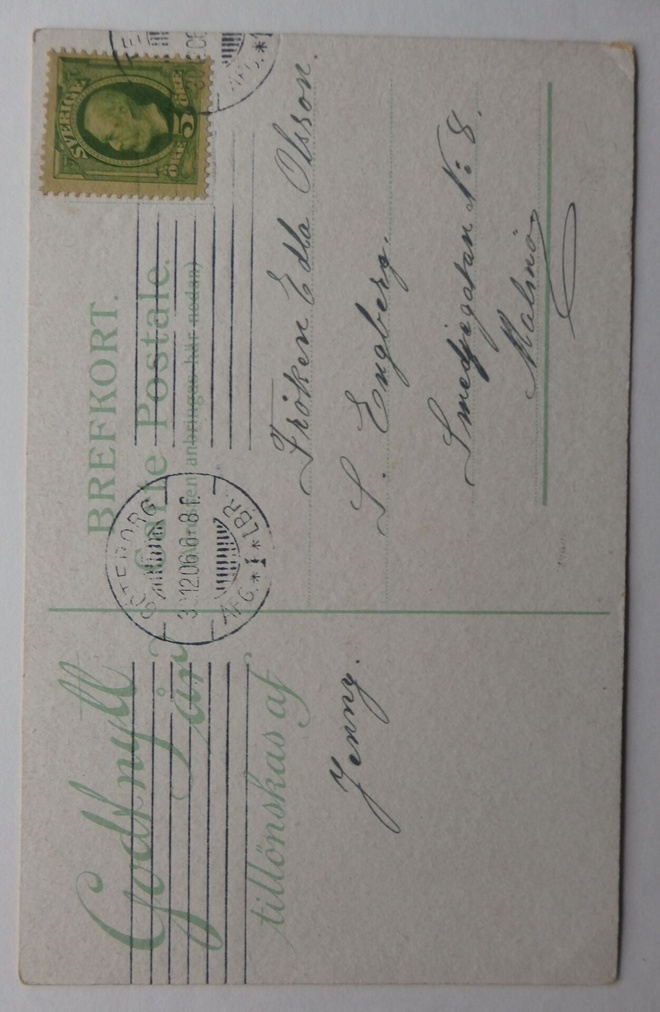 BREFKORT.
Carte Postale.
anbringas här nedan)
SVERIGE
ÖRE 5 ÖRE
GÖTEBORG
12.06.6-8 F.
AFG. *1* LBR.
Fröken Edla Olsson.
S. Engberg.
Smedjegatan N: 8.
Malmö
Godt nytt
år
tillönskas af
Jenny.